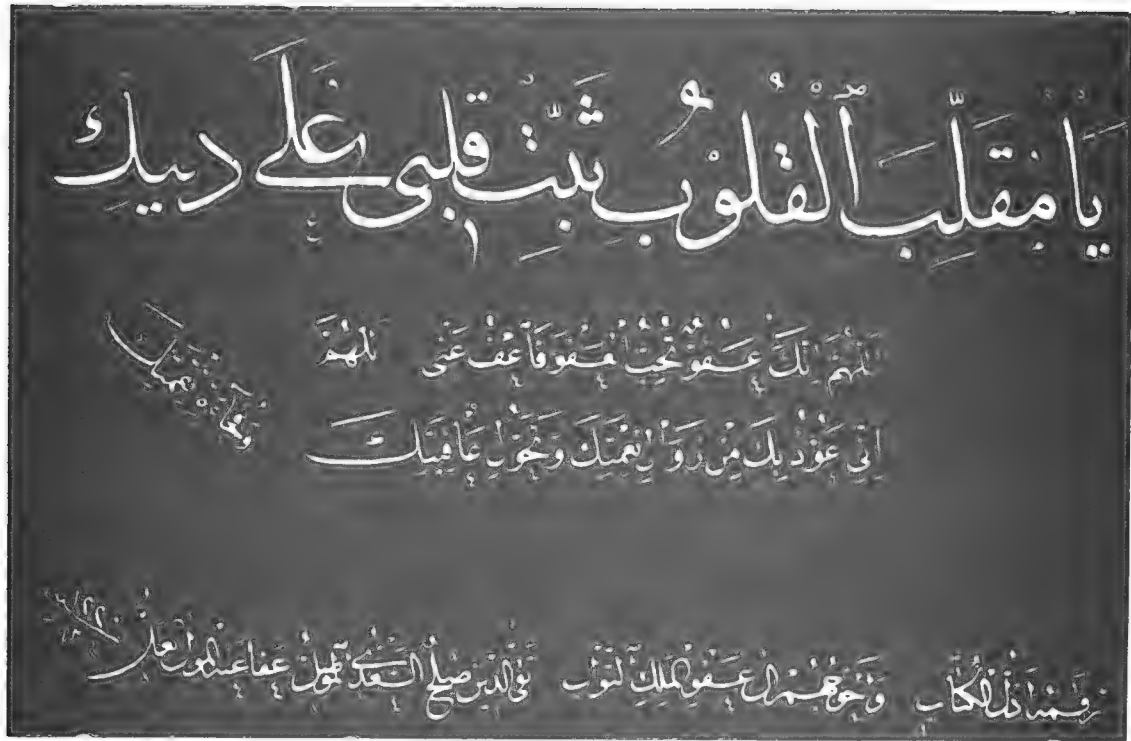 يَا مُقَلِّبَ ٱلْقُلُوبِ ثَبِّتْ قَلْبِي عَلَى دِينِكَ
اَللّٰهُمَّ اِنَّكَ عَفُوٌّ تُحِبُّ الْعَفْوَ فَاعْفُ عَنِّي اَللّٰهُمَّ
اِنِّي اَعُوذُ بِكَ مِنْ زَوَالِ نِعْمَتِكَ وَتَحَوُّلِ عَافِيَتِكَ
وَفُجَاءَةِ نِقْمَتِكَ
الكتاب وَاَحْوَجُهُمْ اِلَى عَفْوِ الْمَلِكِ التَّوَّابِ تقي الدين عفا عنه